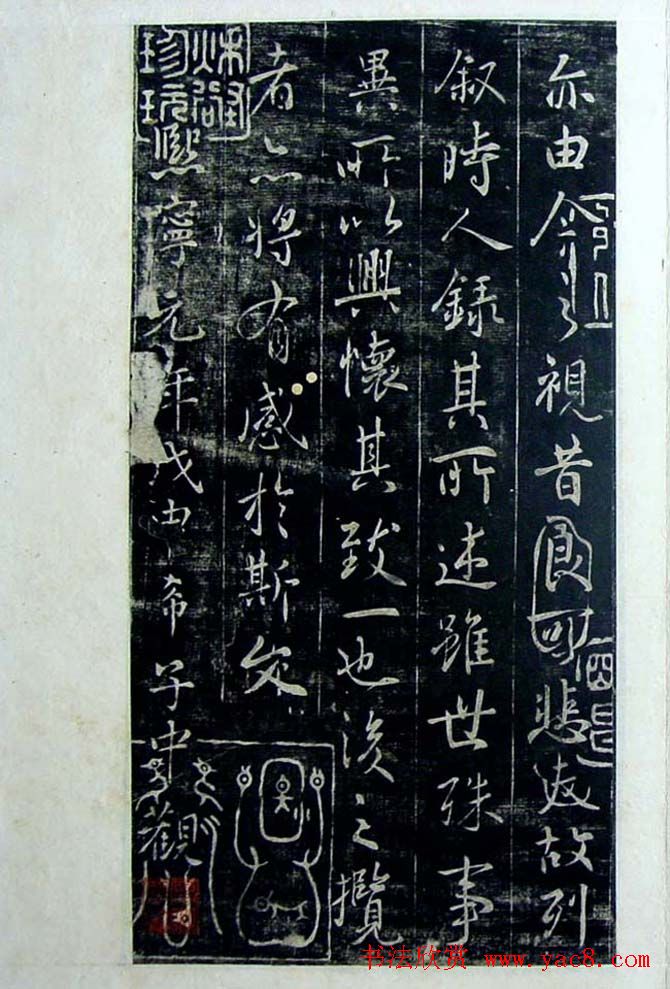 亦由今之視昔良可悲夫故列
叙時人録其所述雖世殊事
異所以興懷其致一也後之攬
者亦將有感於斯文
秋壑珍玩
熙寧元年戊申希子中觀
书法欣赏 www.yac8.com